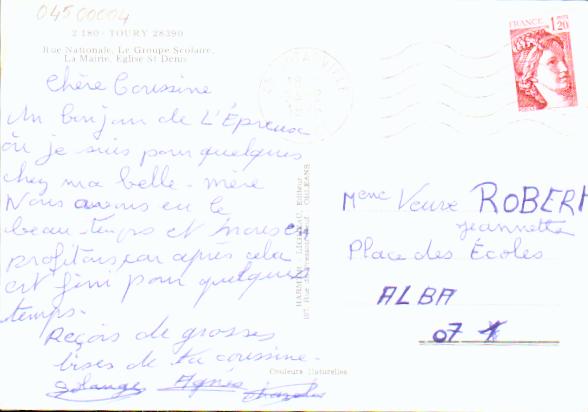 04500004
2 180 - TOURY 28390
Rue Nationale, Le Groupe Scolaire,
La Mairie, Eglise St Denis
FRANCE 1,20
Chère Coussine
Un bonjour de L'Épreuse
où je suis pour quelques
chez ma belle-mère
Nous avons eu le
beau temps et nous en
profitons car après cela
est fini pour quelques
temps.
Reçois de grosses
bises de ta coussine.
Solange Agnès
Couleurs Naturelles
ORLEANS
Mme Veuve ROBERT
Jeannette
Place des Écoles
ALBA
07